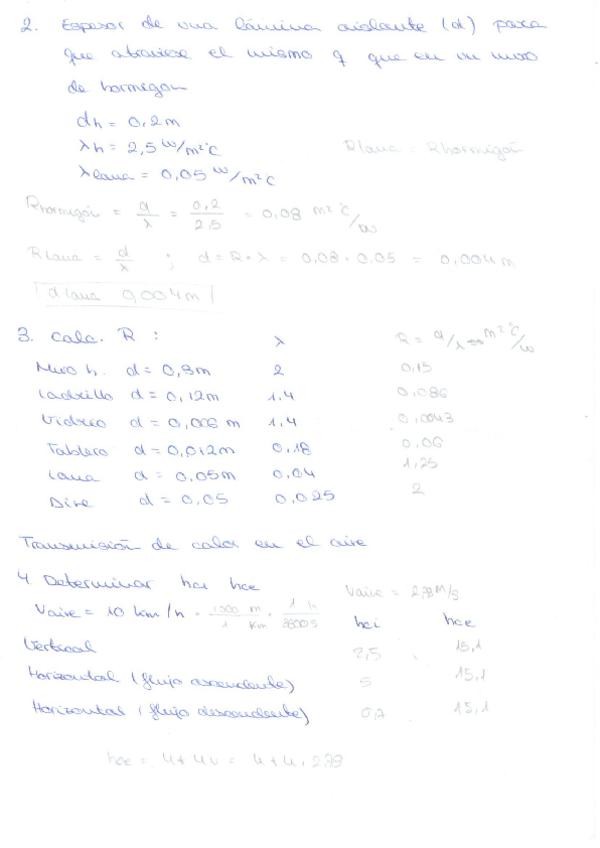 2. Espesor de una lámina aislante (d) para
que atraviese el mismo q que en un muro
de hormigon
dh = 0,2m
λh = 2,5 W/m²°C
Rlana = Rhormigón
λlana = 0,05 W/m²°C
Rhormigón = d/λ = 0,2/2,5 = 0,08 m²°C/W
Rlana = d/λ ; d = R·λ = 0,08·0,05 = 0,004m
dlana 0,004m
3. calc. R : λ R = d/λ ⇔ m²°C/W
Muro h. d = 0,3m 2 0,15
Ladrillo d = 0,12m 1.4 0,086
Vidrio d = 0,006 m 1,4 0,0043
Tablero d = 0,012m 0,18 0,06
Lana d = 0,05m 0,04 1,25
Aire d = 0,05 0,025 2
Transmisión de calor en el aire
4 Determinar hci hce Vaire = 2,78 M/s
Vaire = 10 km/h · 1000 m/1 Km · 1 h/3600s hci hce
Vertical 2,5 15,1
Horizontal (flujo ascendente) 5 15,1
Horizontal (flujo descendente) 0,7 15,1
hce = 4+4v = 4+4.